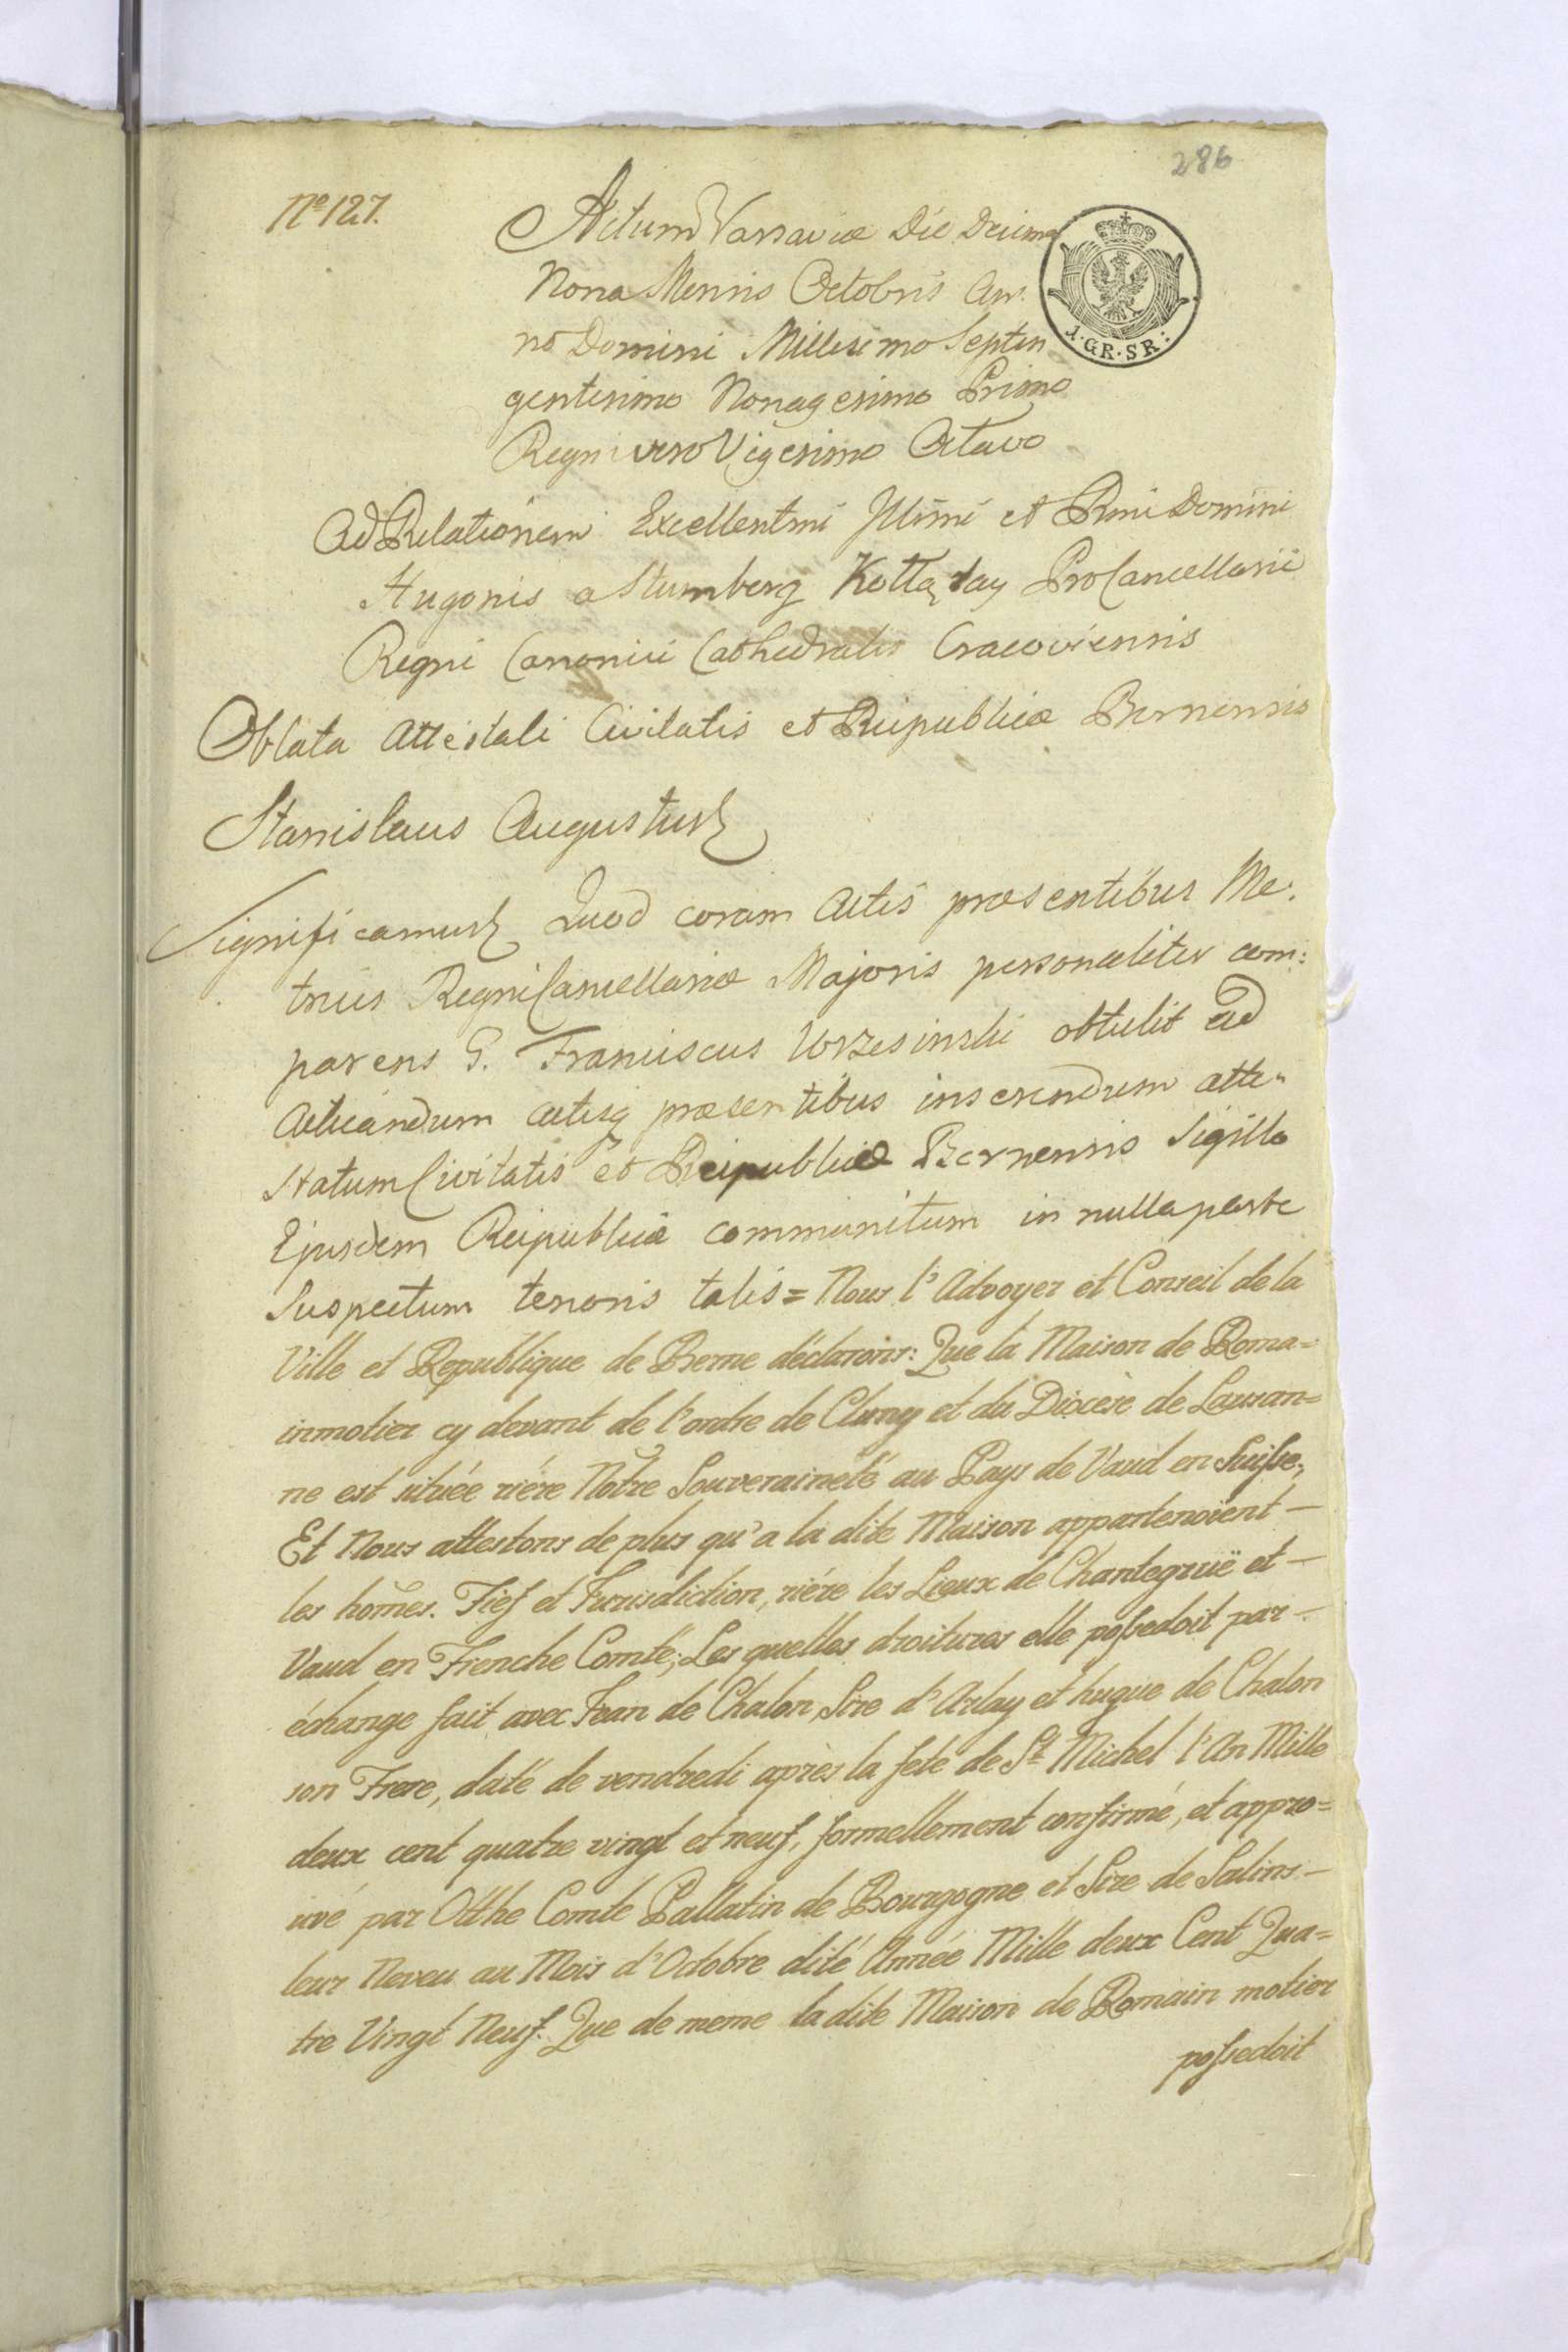 286
Nº 127.
Actum Varsaviæ Die Decima
Nona Mensis Octobris An-
no Domini Millesimo Septin
gentesimo Nonagesimo Primo
Regni vero Vigesimo Octavo
1·GR·SR:
Ad Relationem Excellentmi Illmi et Rmi Domini
Hugonis a Stumberg Kołłątay ProCancellarii
Regni Canonici Cathedralis Cracoviensis
Oblata Attestati Civitatis et Reipublicæ Bernensis
Stanislaus Augustus
Significamus Quod coram Actis præsentibus Me-
trices Regni Cancellariæ Majoris personaliter com:
parens G. Franciscus Wrzesinski obtulit ad
Acticandum actisq præsentibus inserendum atte-
statum Civitatis et Reipublicæ Bernensis Sigillo
Ejusdem Reipublicæ communitum in nulla parte
Suspectum tenoris talis = Nous l'Advoyer et Conseil de la
Ville et Republique de Berne déclarons: Que la Maison de Roma=
inmotier cy devant de l'ordre de Cluny et du Diocèse de Lausan=
ne est située riére Nôtre Souveraineté au Pays de Vaud en Suisse;
Et Nous attestons de plus qu'a la dite Maison appartenoient —
les hom̃es. Fief et Jurisdiction, riére les Lieux de Chantegruë et —
Vaud en Frenche Comté; Les quelles droitures elle possedoit par —
échange fait avec Jean de Chalon, Sire d'Arlay et hugue de Chalon
son Frere, daté de vendredi après la fete de St Michel l'An Mille
deux cent quatre vingt et neuf, formellement confirmé, et appro=
uvé par Otthe Comte Pallatin de Bourgogne et Sire de Salins —
leur Neveu au Mois d'Octobre dité Année Mille deux Cent Qua=
tre Vingt Neuf. Que de meme la dite Maison de Romain motier
possedoit